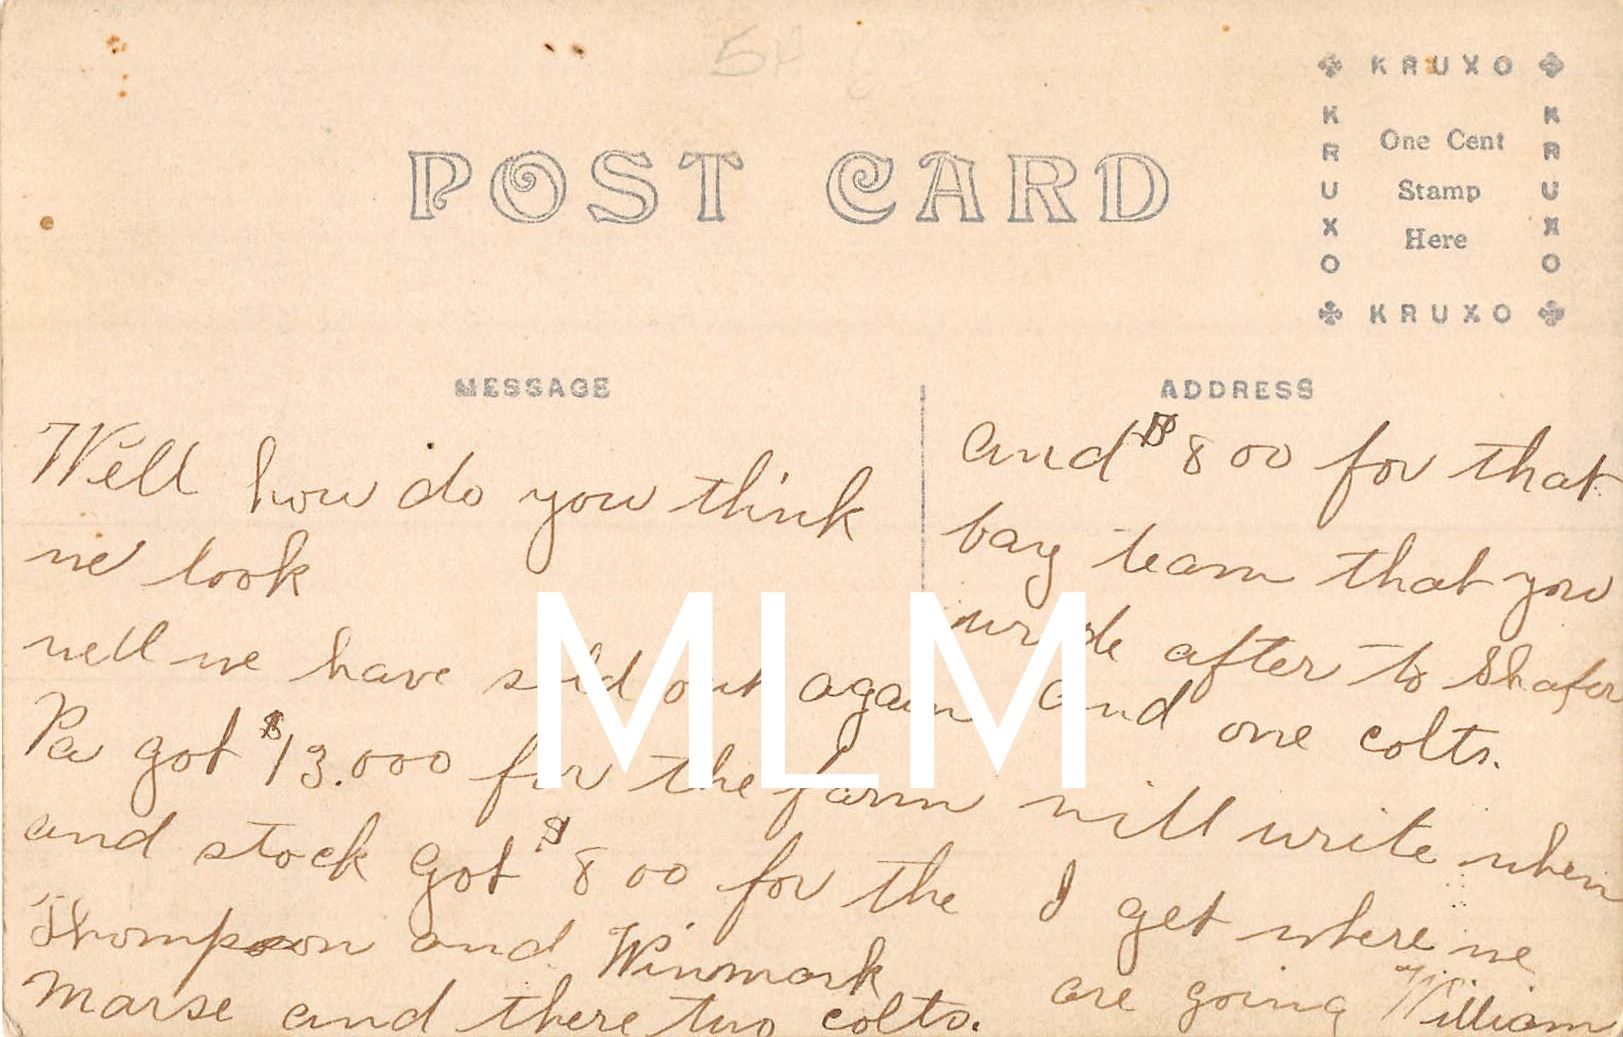 KRUXO
KRUXO
One Cent
Stamp
Here
KRUXO
KRUXO
POST CARD
MESSAGE
Well how do you think
we look
well we have sold out again
Pa got $13.000 for the farm
and stock got $800 for the
Thompson and Winmark
marse and there two colts.
ADDRESS
and $800 for that
bay team that you
wrote after to Shafer
and one colts.
will write when
I get where we
are going William
MLM